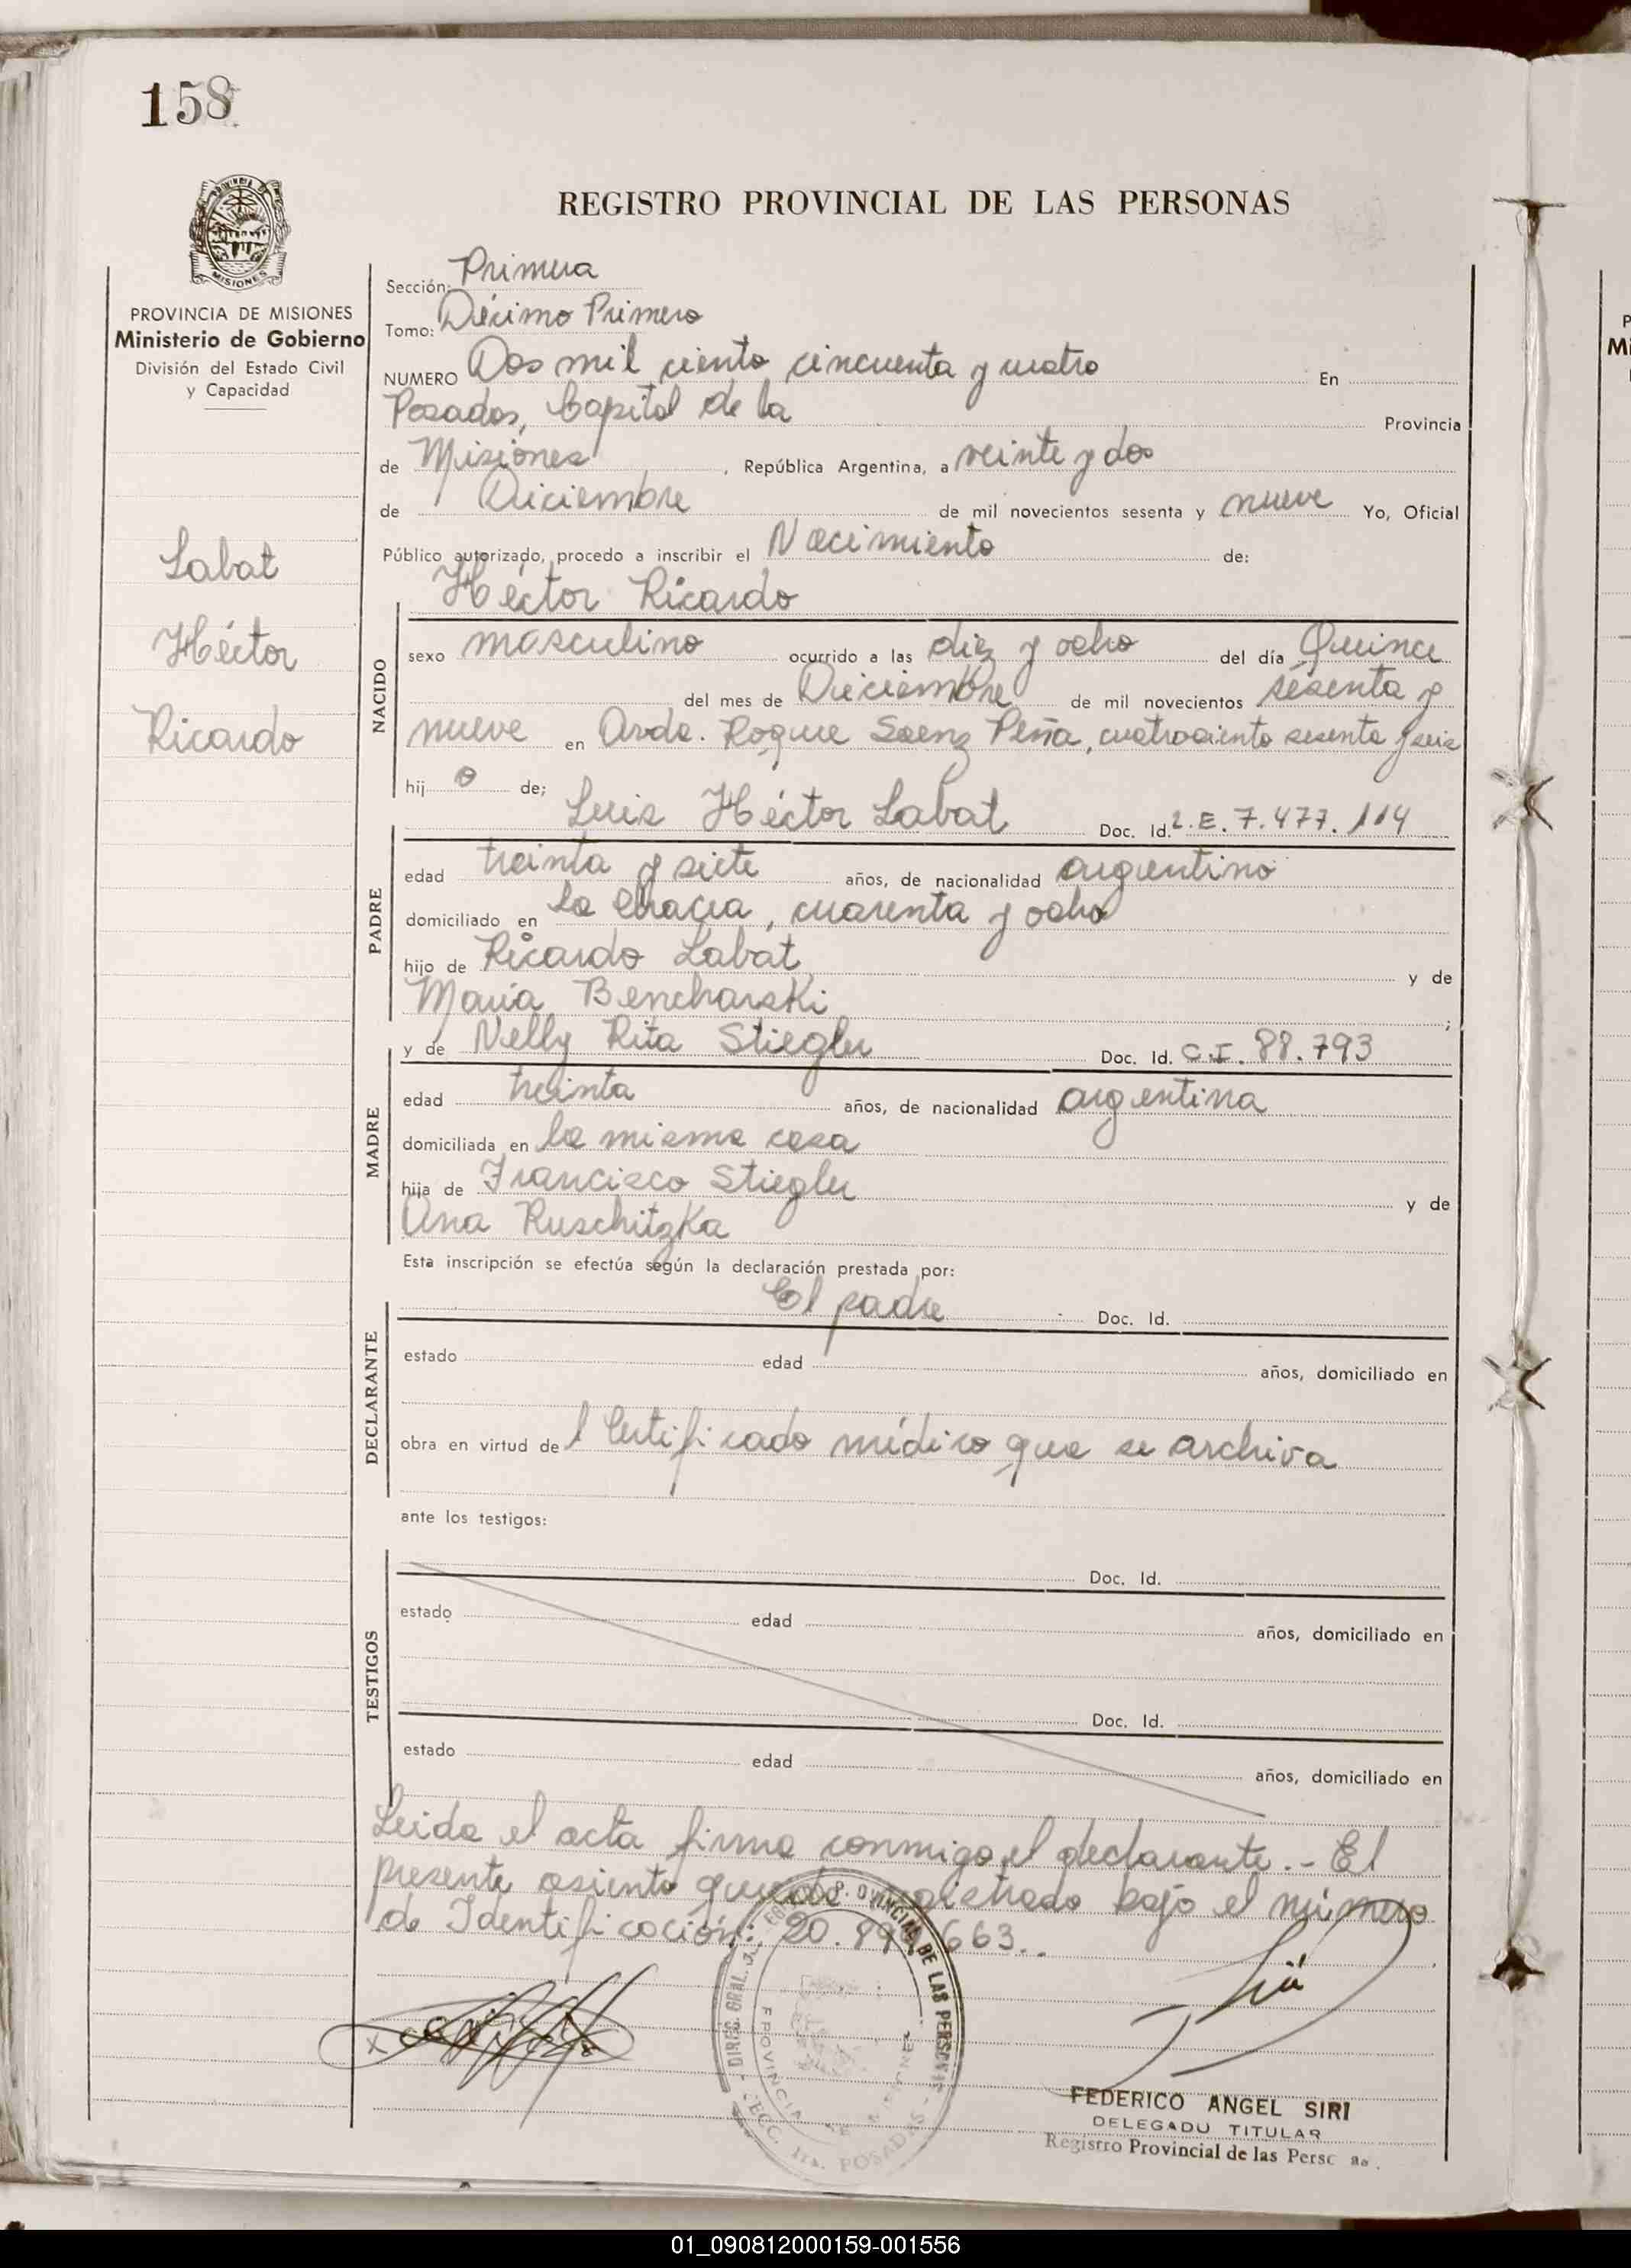 158
REGISTRO PROVINCIAL DE LAS PERSONAS
MISIONES
PROVINCIA DE MISIONES
Ministerio de Gobierno
División del Estado Civil
y Capacidad
Labat
Héctor
Ricardo
Sección: Primera
Tomo: Décimo Primero
NUMERO Dos mil ciento cincuenta y cuatro En
Posadas, Capital de la Provincia
de Misiones, República Argentina, a veinte y dos
de Diciembre de mil novecientos sesenta y nueve Yo, Oficial
Público autorizado, procedo a inscribir el Nacimiento de:
Héctor Ricardo
NACIDO
sexo masculino ocurrido a las diez y ocho del día Quince
del mes de Diciembre de mil novecientos sesenta y
nueve en Avda. Roque Saenz Peña, cuatrociento sesenta y seis
hij o de;
Luis Héctor Labat Doc. Id. L.E. 7.477.114
PADRE
edad treinta y siete años, de nacionalidad argentino
domiciliado en La cuarenta y ocho
hijo de Ricardo Labat y de
María Bencharski ;
y de Nelly Rita Stiegler Doc. Id. C.I. 88.793
MADRE
edad treinta años, de nacionalidad argentina
domiciliada en la misma casa
hija de Francisco Stiegler y de
Ana Ruschitzka
Esta inscripción se efectúa según la declaración prestada por:
El padre Doc. Id.
DECLARANTE
estado edad años, domiciliado en
obra en virtud del Certificado médico que se archiva
ante los testigos:
TESTIGOS
Doc. Id.
estado edad años, domiciliado en
Doc. Id.
estado edad años, domiciliado en
Leida el acta firma conmigo el declarante.- El
presente asiento queda registrado bajo el número
de Identificación: 20.899.663..
DIREC. GRAL. PROVINCIAL DE LAS PERSONAS
PROVINCIA DE MISIONES
SECC. 1ra. POSADAS
FEDERICO ANGEL SIRI
DELEGADO TITULAR
Registro Provincial de las Persc as.
P
Mi
01_090812000159-001556